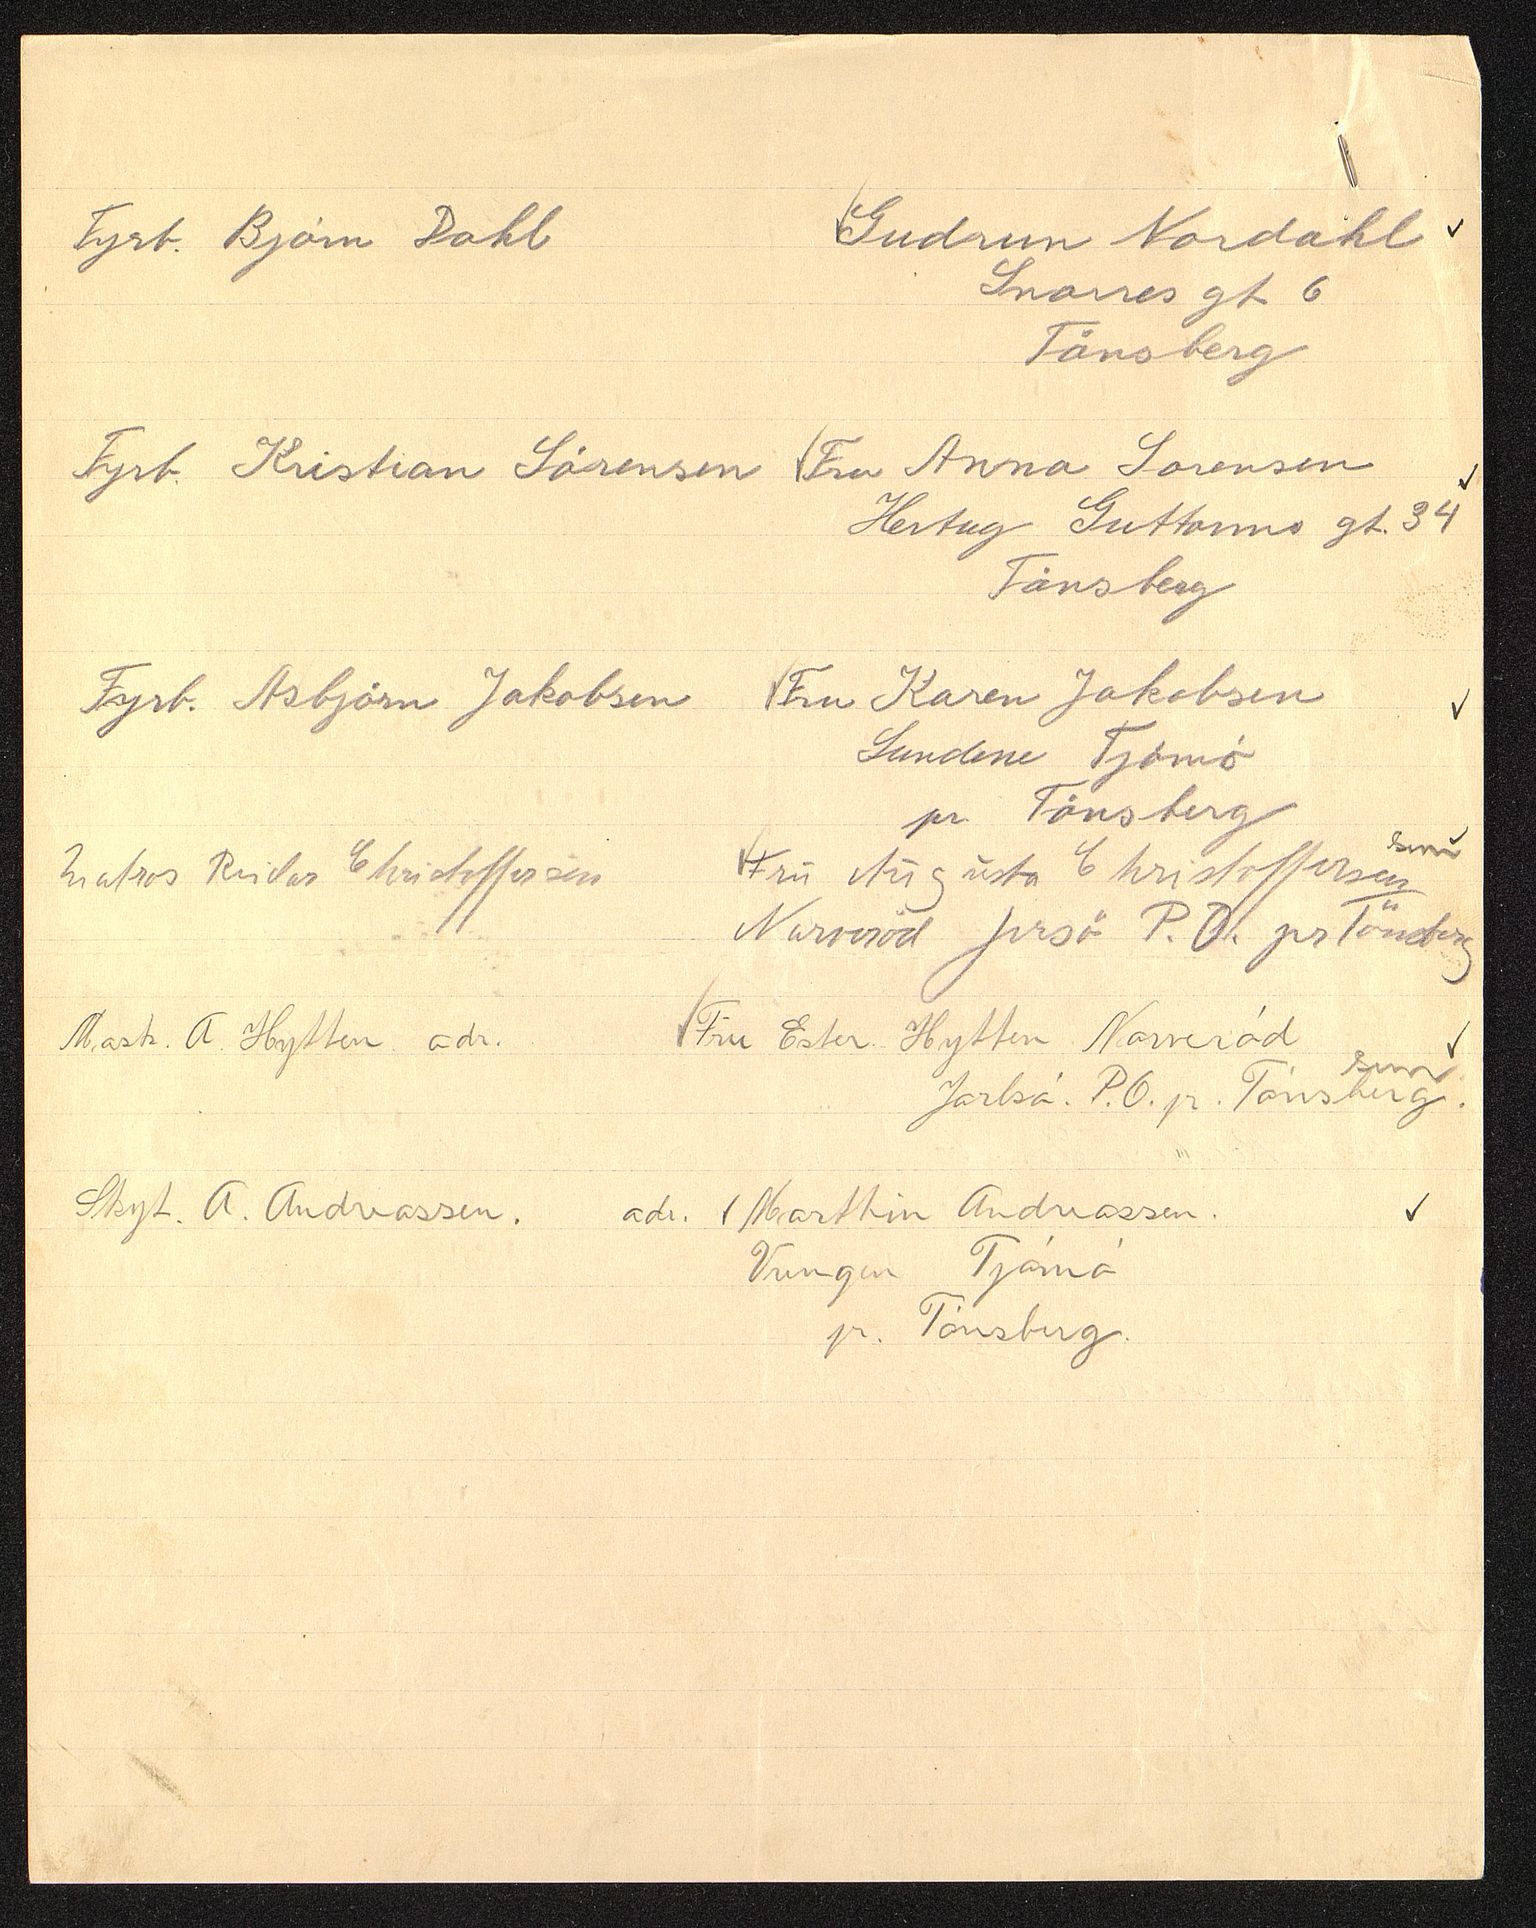 Fyrb. Bjørn Dahl Gudrun Nordahl
Snorres gt 6
Tönsberg
Fyrb. Kristian Sörensen Fru Anna Sorensen
Hertug Guttorms gt. 34
Tönsberg
Fyrb. Asbjörn Jakobsen Fru Karen Jakobsen
Sundene Tjömö
pr Tönsberg
Matros Reidar Christoffersen Fru Augusta Christoffersen
Narveröd P.O. pr Tönsberg
Mask. A. Hytten adr. Fru Ester Hytten Narveröd
Jarlsö. P.O. pr. Tönsberg.
Skyt. A. Andreassen. adr. Marthin Andreassen.
Vrengen Tjömö
pr. Tönsberg.